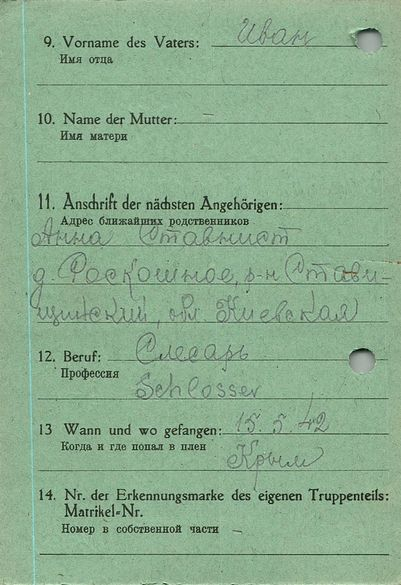 9. Vorname des Vaters: Иван
Имя отца
10. Name der Mutter:
Имя матери
11. Anschrift der nächsten Angehörigen:
Адрес ближайших родственников
Анна Ставнист
д. Роскошное, р-н Стави-
щинский, обл. Киевская
12. Beruf: Слесарь
Профессия
Schlosser
13 Wann und wo gefangen: 15. 5. 42
Когда и где попал в плен
Крым
14. Nr. der Erkennungsmarke des eigenen Truppenteils:
Matrikel-Nr.
Номер в собственной части –